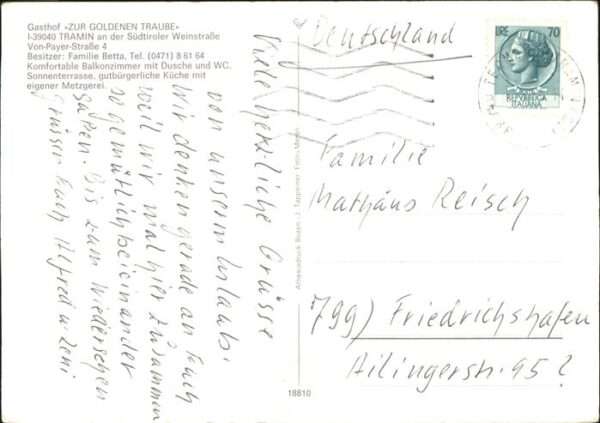 Gasthof «ZUR GOLDENEN TRAUBE»
I-39040 TRAMIN an der Südtiroler Weinstraße
Von-Payer-Straße 4
Besitzer: Familie Betta, Tel. (0471) 8 61 64
Komfortable Balkonzimmer mit Dusche und WC.
Sonnenterrasse, gutbürgerliche Küche mit
eigener Metzgerei.
Viele herzliche Grüsse
von unserm Urlaub.
Wir denken gerade an Euch
weil wir mal hier zusammen
so gemütlich beieinander
saßen. Bis zum Wiedersehen
Grüssen Euch Alfred u. Zeni
18810
Deutschland
LIRE 70
REPVBBLICA
ITALIANA
Familie
Mathäus Reisch
799) Friedrichshafen
Ailingerstr. 95?